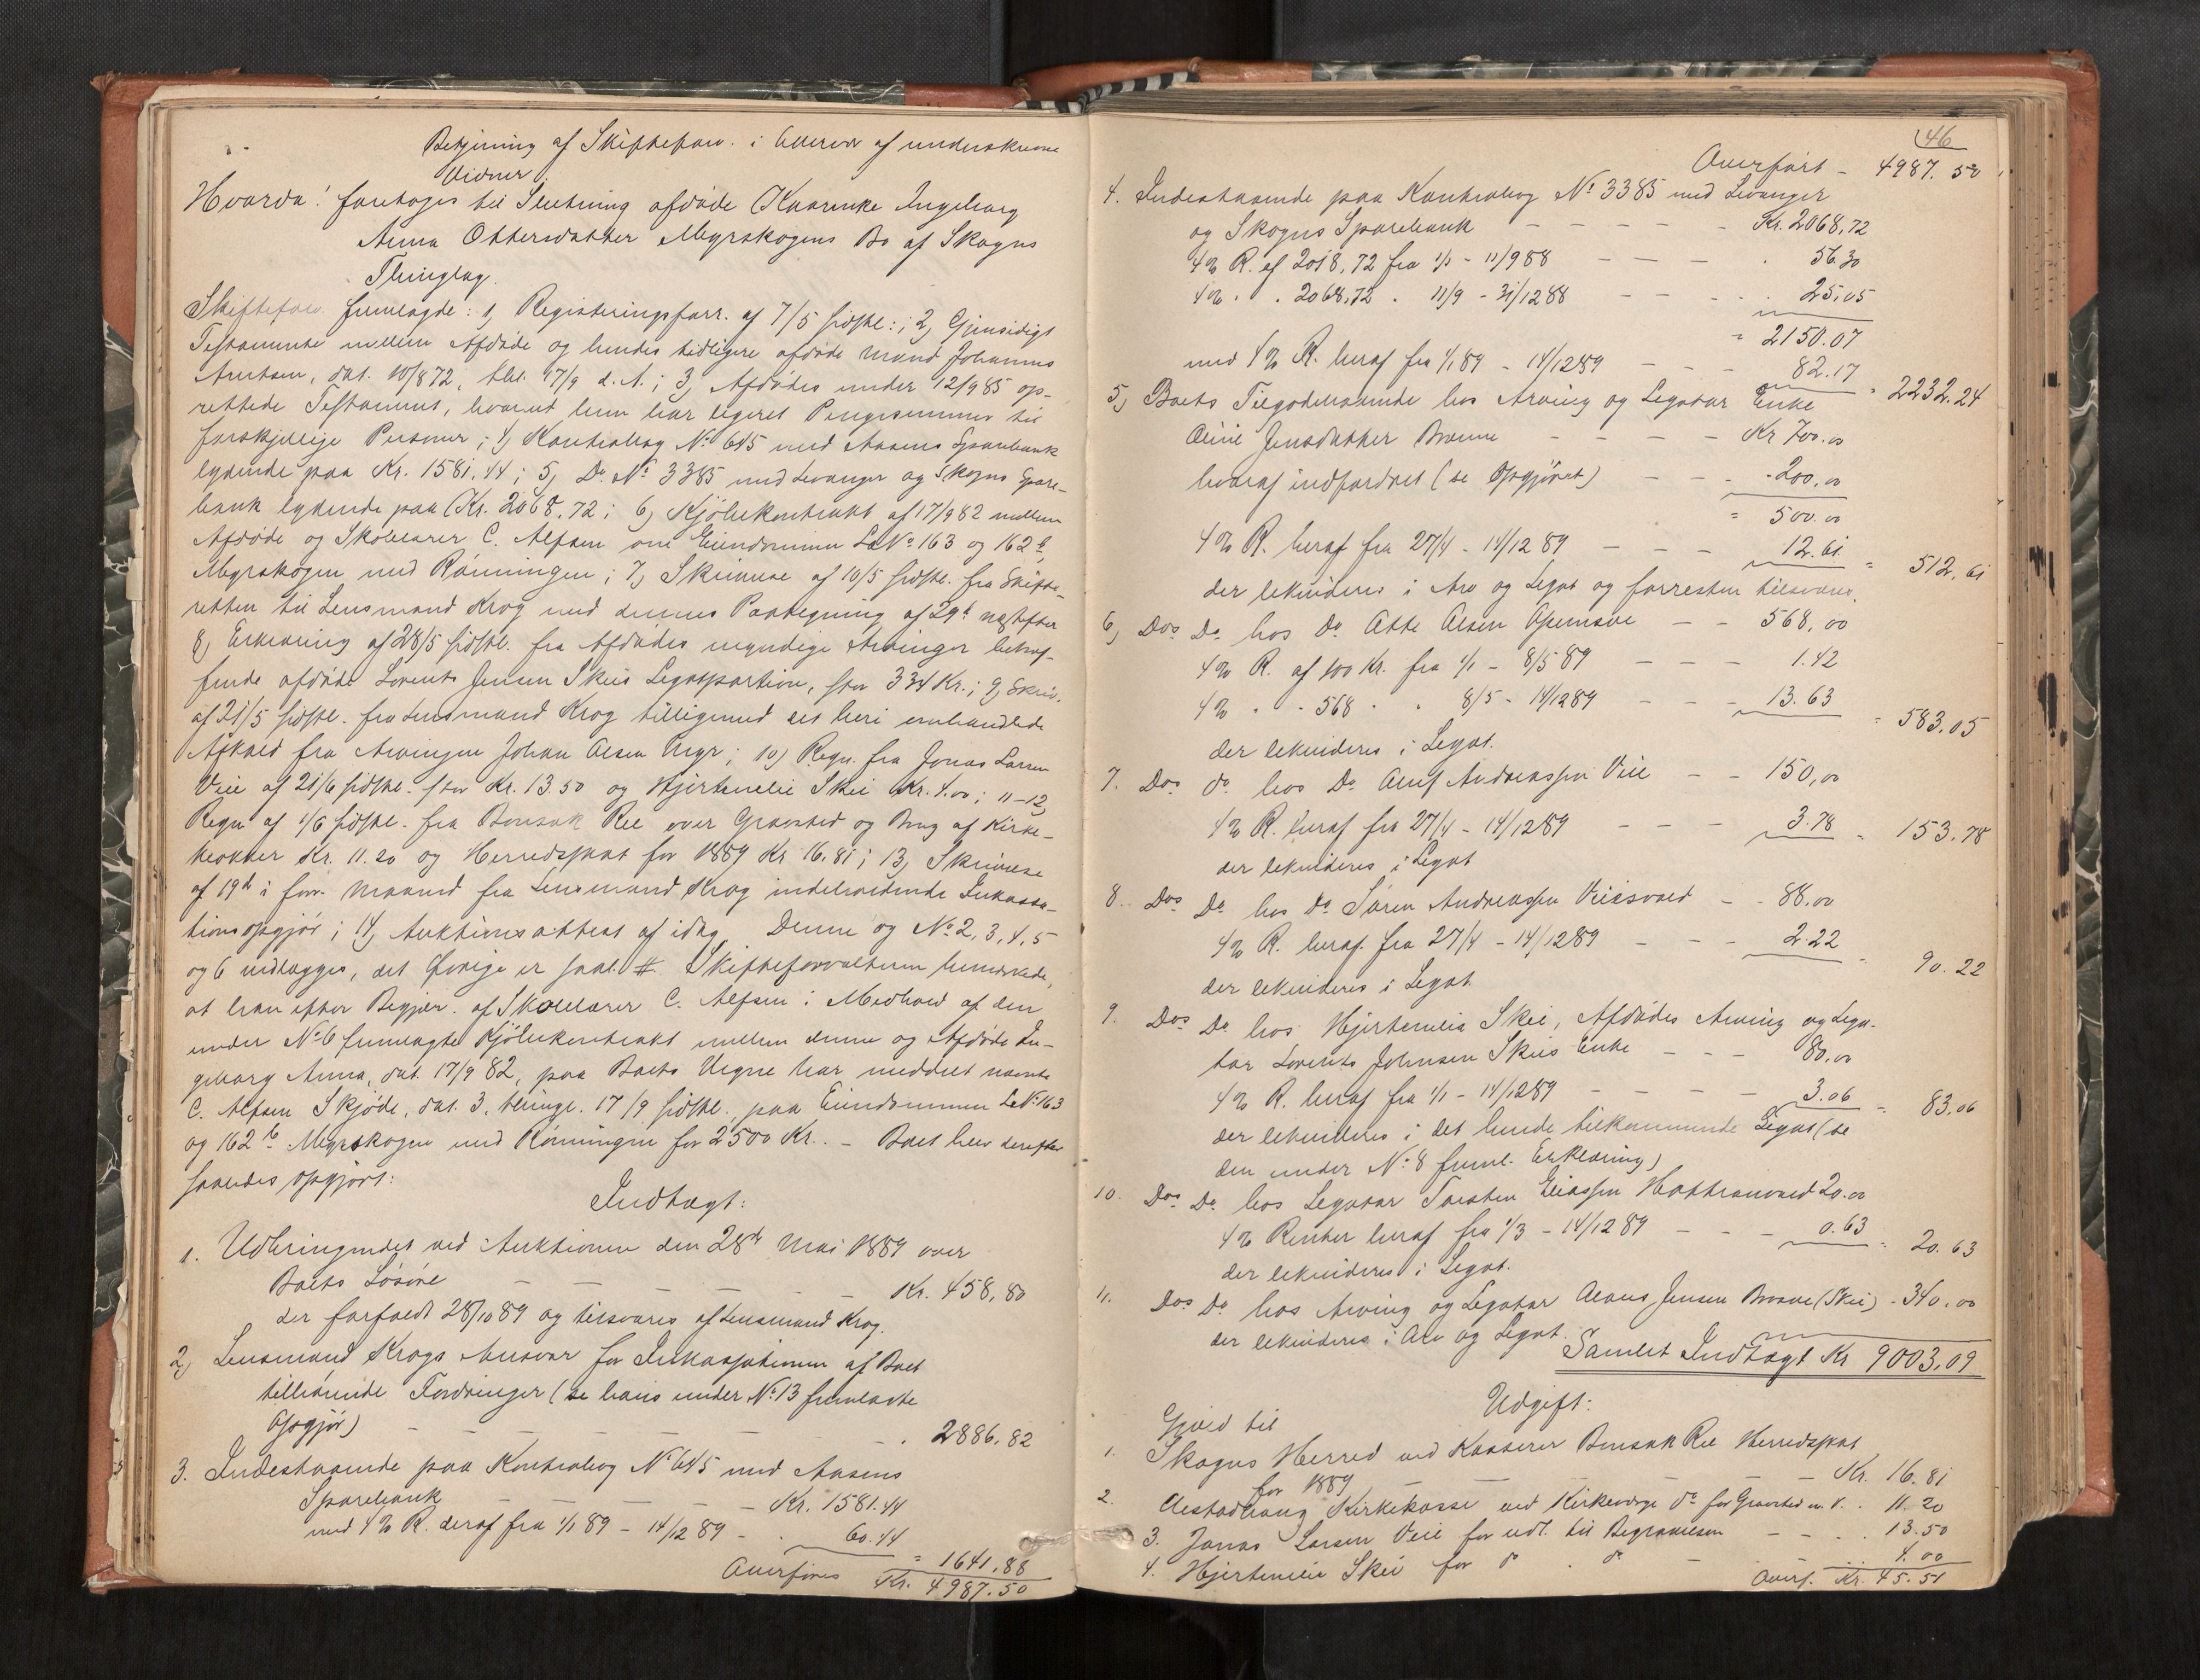 Betjening af Skifteforv. i Overvær af underskrevne
Vidner.
Hvorda! foretoges til Slutning afdøde Kaarinke Ingeborg
Anna Ottersdatter Myrskogens Bo af Skogns
Thinglag.
Skifteforv. fremlagde: 1, Registreringsforr. af 7/5 sidstl.; 2, Gjensidigt
Testamente mellem Afdøde og hendes tidligere afdøde Mand Johannes
Arntsen, dat. 10/8 72, thl. 17/9 d. A.; 3, Afdødes under 12/9 85 op-
rettede Testament, hvorved hun har legeret Pengesummer til
forskjellige Personer; 4, Kontrabog No 645 med Aasens Sparebank
lydende paa Kr. 1581.44; 5, Do No 3385 med Levanger og Skogns Spare-
bank lydende paa Kr. 2068.72; 6, Kjöbekontrakt af 17/9 82 mellem
Afdøde og Skolelærer C. Alfsen om Eiendommen LNo 163 og 162 b
Myrskogen med Rönningen; 7, Skrivelse af 10/5 sidstl. fra Skifte-
retten til Lensmand Krog med dennes Paategning af 29d næstefter
8, Erklæring af 28/5 sidstl. fra Afdødes myndige Arvinger betræf-
fende afdøde Lorents Jensen Skeis Legatportion, stor 334 Kr.; 9, Skriv.
af 21/5 sidstl. fra Lensmand Krog tilligemed det heri omhandlede
Afkald fra Arvingen Johan Olsen Myr; 10, Regn. fra Jonas Larsen
Veie af 21/6 sidstl. stor Kr. 13.50 og Hjertenelie Skei Kr. 4.00; 11-12,
Regn af 1/6 sidstl. fra Bensak Ree over Gravsted og Brug af Kirke-
klokker Kr. 11.20 og Herredsskat for 1889 Kr 16.81; 13, Skrivelse
af 19de i forr. Maaned fra Lensmand Krog indeholdende Inkassa-
tionsopgjör; 14, Auktionsattest af idag. Denne og No 2, 3, 4, 5
og 6 vedlægges, det Øvrige er saal. #. Skifteforvalteren bemærkede,
at han efter Begjær. af Skolelærer C. Alfsen i Medhold af den
under No 6 fremlagte Kjöbekontrakt mellem denne og Afdøde In-
geborg Anna, dat. 17/9 82, paa Boets Vegne har meddelt nævnte
C. Alfsen Skjöde, dat. 3, thinge. 17/9 sidstl. paa Eiendommen LNo 163
og 162 b Myrskogen med Rönningen for 2500 Kr. - Boet blev derefter
saaledes opgjort:
Indtægt:
1. Udbringendet ved Auktionen den 28de Mai 1889 over
Boets Lösöre - - - - Kr. 458,80
der forfaldt 28/10 89 og tilsvares af Lensmand Krog.
2, Lensmand Krogs Ansvar for Inkassationen af Boet
tilhörende Fordringer (se hans under No 13 fremlagte
Opgjör) - - - - - - . 2886.82
3. Indestaaende paa Kontrabog No 645 med Aasens
Sparebank - - - - - Kr. 1581.44
med 4% R. deraf fra 1/1 89 - 14/12 89 - . 60.44
= 1641.88
Overföres Kr. 4987.50
46
Overfört - 4987.50
4. Indestaaende paa Kontrabog No 3385 med Levanger
og Skogns Sparebank - - - - - Kr. 2068,72
4% R. af 2018,72 fra 1/1 - 11/9 88 - - - . 56.30
4% . . 2068,72 . 11/9 - 31/12 88 - - - . 25,05
= 2150.07
med 4% R. heraf fra 1/1 89 - 14/12 89 - - - 82.17 = 2232.24
5, Boets Tilgodehavende hos Arving og Legatar Enke
Oline Jensdatter Brænne - - - - Kr 700.00
hvoraf indfordret (se Opgjöret) - - - 200,00
= 500.00
4% R. heraf fra 27/4 - 14/12 89 - - - 12.61 = 512.61
der lekvideres i Arv og Legat og forresten tilsvares.
6, Dos Do hos Do Otte Olsen Opemsve - - 568,00
4% R. af 100 Kr. fra 1/1 - 8/5 89 - - - 1.42
4% . . 568 . . 8/5 - 14/12 89 - - - 13.63 = 583.05
der lekvideres i Legat.
7. Dos do hos Do Oluf Andreassen Veie - - 150,00
4% R. heraf fra 27/4 - 14/12 89 - - - 3.78 = 153.78
der lekvideres i Legat
8. Dos Do hos Do Sören Andreassen Veiesvald - - 88.00
4% R. heraf fra 27/4 - 14/12 89 - - - 2.22 = 90.22
der lekvideres i Legat
9. Dos Do hos Hjertenelia Skei, Afdødes Arving og Lega-
tar Lorents Johnsen Skeis Enke - - - 80.00
4% R. heraf fra 1/1 - 14/12 89 - - - - 3.06 = 83.06
der lekvideres i det hende tilkommende Legat (se
den under No 8 freml. Erklæring)
10. Dos Do hos Legatar Torsten Eliassen Hottranvald 20.00
4% Renter heraf fra 1/3 - 14/12 89 - - - 0.63 = 20.63
der lekvideres i Legat.
11. Dos Do hos Arving og Legatar Olaus Jensen Brosve (Skei) - 340.00
der lekvideres i Arv og Legat.
Samlet Indtægt Kr 9003,09
Udgift:
Gjæld til
1. Skogns Herred ved Kasserer Bensak Ree Herredsskat
for 1889 - - - - - Kr. 16.81
2. Alstadhaug Kirkekasse ved Kirkeværge do for Gravsted m. v. . 11.20
3. Jonas Larsen Veie for udl. til Begravelsen - - - . 13.50
4. Hjertenelie Skei for do . do - . 4.00
Overf. Kr. 45.51